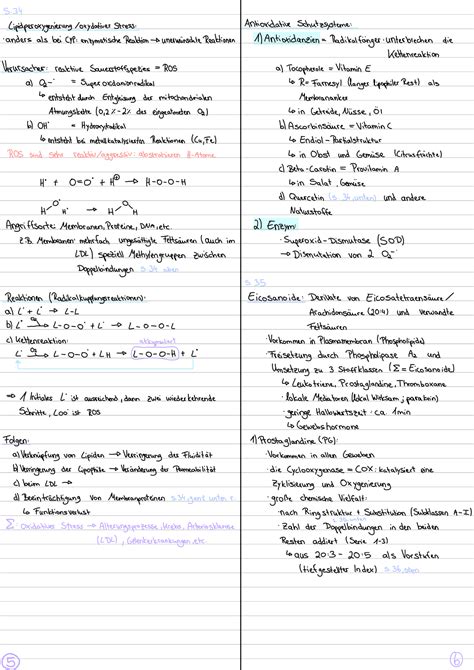 S.34
Lipidperoxygenierung/oxydativer Stress:
·anders als bei CYP: enzymatische Reaktion → unerwünschte Reaktionen
Verursacher: reaktive Sauerstoffspezies = ROS
a) O₂⁻˙ = Superoxidanionradikal
↳ entsteht durch Entgleisung der mitochondrialen
Atmungskette (0,2%-2% des eingeatmeten O₂)
b) OH˙ = Hydroxylradikal
↳ entsteht bei metallkatalysierten Reaktionen (Cu,Fe)
ROS sind sehr reaktiv/aggressiv: abstrahieren H-Atome
H˙ + O=O˙ + H⊕ → H-O-O-H
H˙ H → H H
Angriffsorte: Membranen, Proteine, DNA, etc.
z.B. Membranen: mehrfach ungesättigte Fettsäuren (auch im
LDL) speziell Methylengruppen zwischen
Doppelbindungen s.34 oben
Reaktionen (Radikalkupplungsreaktionen):
a) L˙ + L˙ → L-L
b) L˙ → L-O-O˙ + L˙ → L-O-O-L
c) Kettenreaktion:
L˙ → L-O-O˙ + LH → L-O-O-H + L˙
⇒ 1 initiales L˙ ist ausreichend, dann zwei wiederkehrende
Schritte, LOO˙ ist ROS
Folgen:
a) Verknüpfung von Lipiden → Verringerung der Fluidität
b) Verringerung der Lipophilie → Veränderung der Permeabilität
c) beim LDL →
d) Beeinträchtigung von Membranproteinen s.34 ganz unten r.
↳ Funktionsverlust
Σ: Oxidativer Stress → Alterungsprozesse, Krebs, Arteriosklerose
(LDL), Gelenkerkrankungen, etc.
5
Antioxidative Schutzsysteme:
1) Antioxidanzien = Radikalfänger: unterbrechen die
Kettenreaktion
a) Tocopherole = Vitamin E
↳ R = Farnesyl (langer lipophiler Rest) als
Membrananker
↳ in Getreide, Nüsse, Öl
b) Ascorbinsäure = Vitamin C
↳ Endiol-Partialstruktur
↳ in Obst und Gemüse (Citrusfrüchte)
c) Beta-Carotin = Provitamin A
↳ in Salat, Gemüse
d) Quercetin (s.34 unten) und andere
Naturstoffe
2) Enzym:
·Superoxid-Dismutase (SOD)
→ Dismutation von 2 O₂⁻˙
S.35
Eicosanoide: Derivate von Eicosatetraensäure/
Arachidonsäure (20:4) und verwandte
Fettsäuren
·Vorkommen in Plasmamembran (Phospholipide)
·Freisetzung durch Phospholipase A2 und
Umsetzung zu 3 Stoffklassen (Σ = Eicosanoide)
↳ Leukotriene, Prostaglandine, Thromboxane
·lokale Mediatoren (lokal wirksam; parakrin)
·geringe Halbwertszeit: ca. 1min
↳ Gewebshormone
1) Prostaglandine (PG):
·Vorkommen in allen Geweben
·die Cyclooxygenase = COX: katalysiert eine
Zyklisierung und Oxygenierung
·große chemische Vielfalt:
·nach Ringstruktur + Substitution (Subklassen A-I)
·Zahl der Doppelbindungen in den beiden
Resten addiert (Serie 1-3)
↳ aus 20:3 - 20:5 als Vorstufen
(tiefgestellter Index) s.36 oben
6